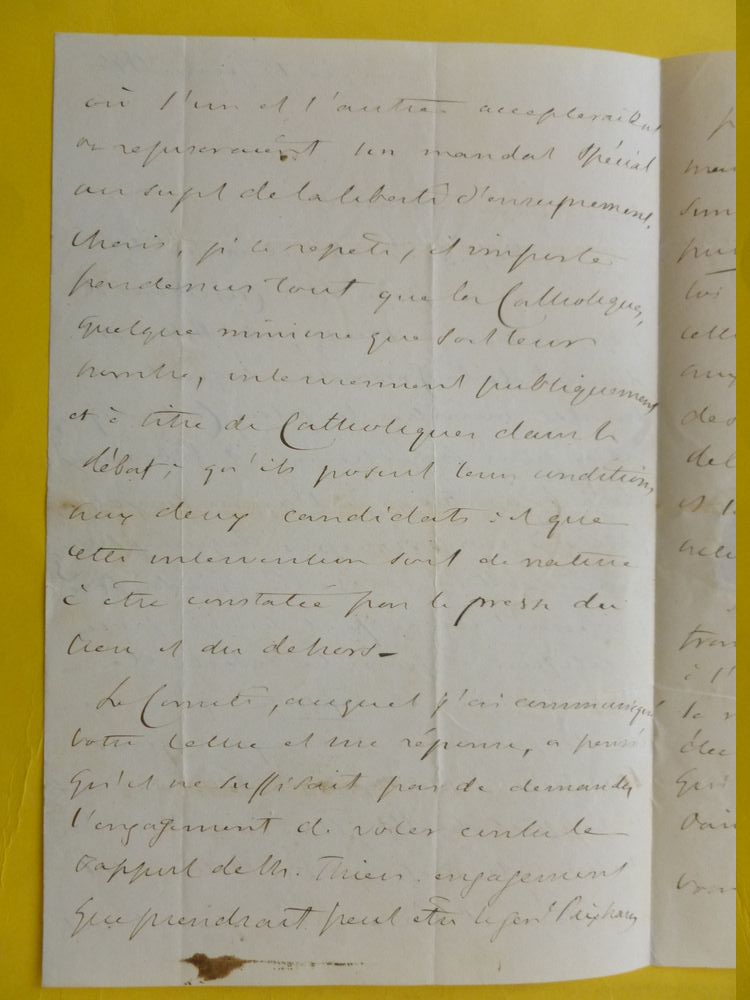 où l'un et l'autre accepteraient
ou refuseraient un mandat spécial
au sujet de la liberté d'enseignement.
Mais, je le repète, il importe
pardessus tout que les Catholiques,
quelque minime que soit leur
nombre, interviennent publiquement
et à titre de Catholiques dans le
débat; qu'ils posent leurs conditions
aux deux candidats : et que
cette intervention soit de nature
à être constatée par la presse du
lieu et du dehors —
Le Comité, auquel j'ai communiqué
votre lettre et ma réponse, a pensé
qu'il ne suffisait pas de demander
l'engagement de voter contre le
rapport de M. Thiers. engagement
que prendrait peut être le gen.l Paixhans